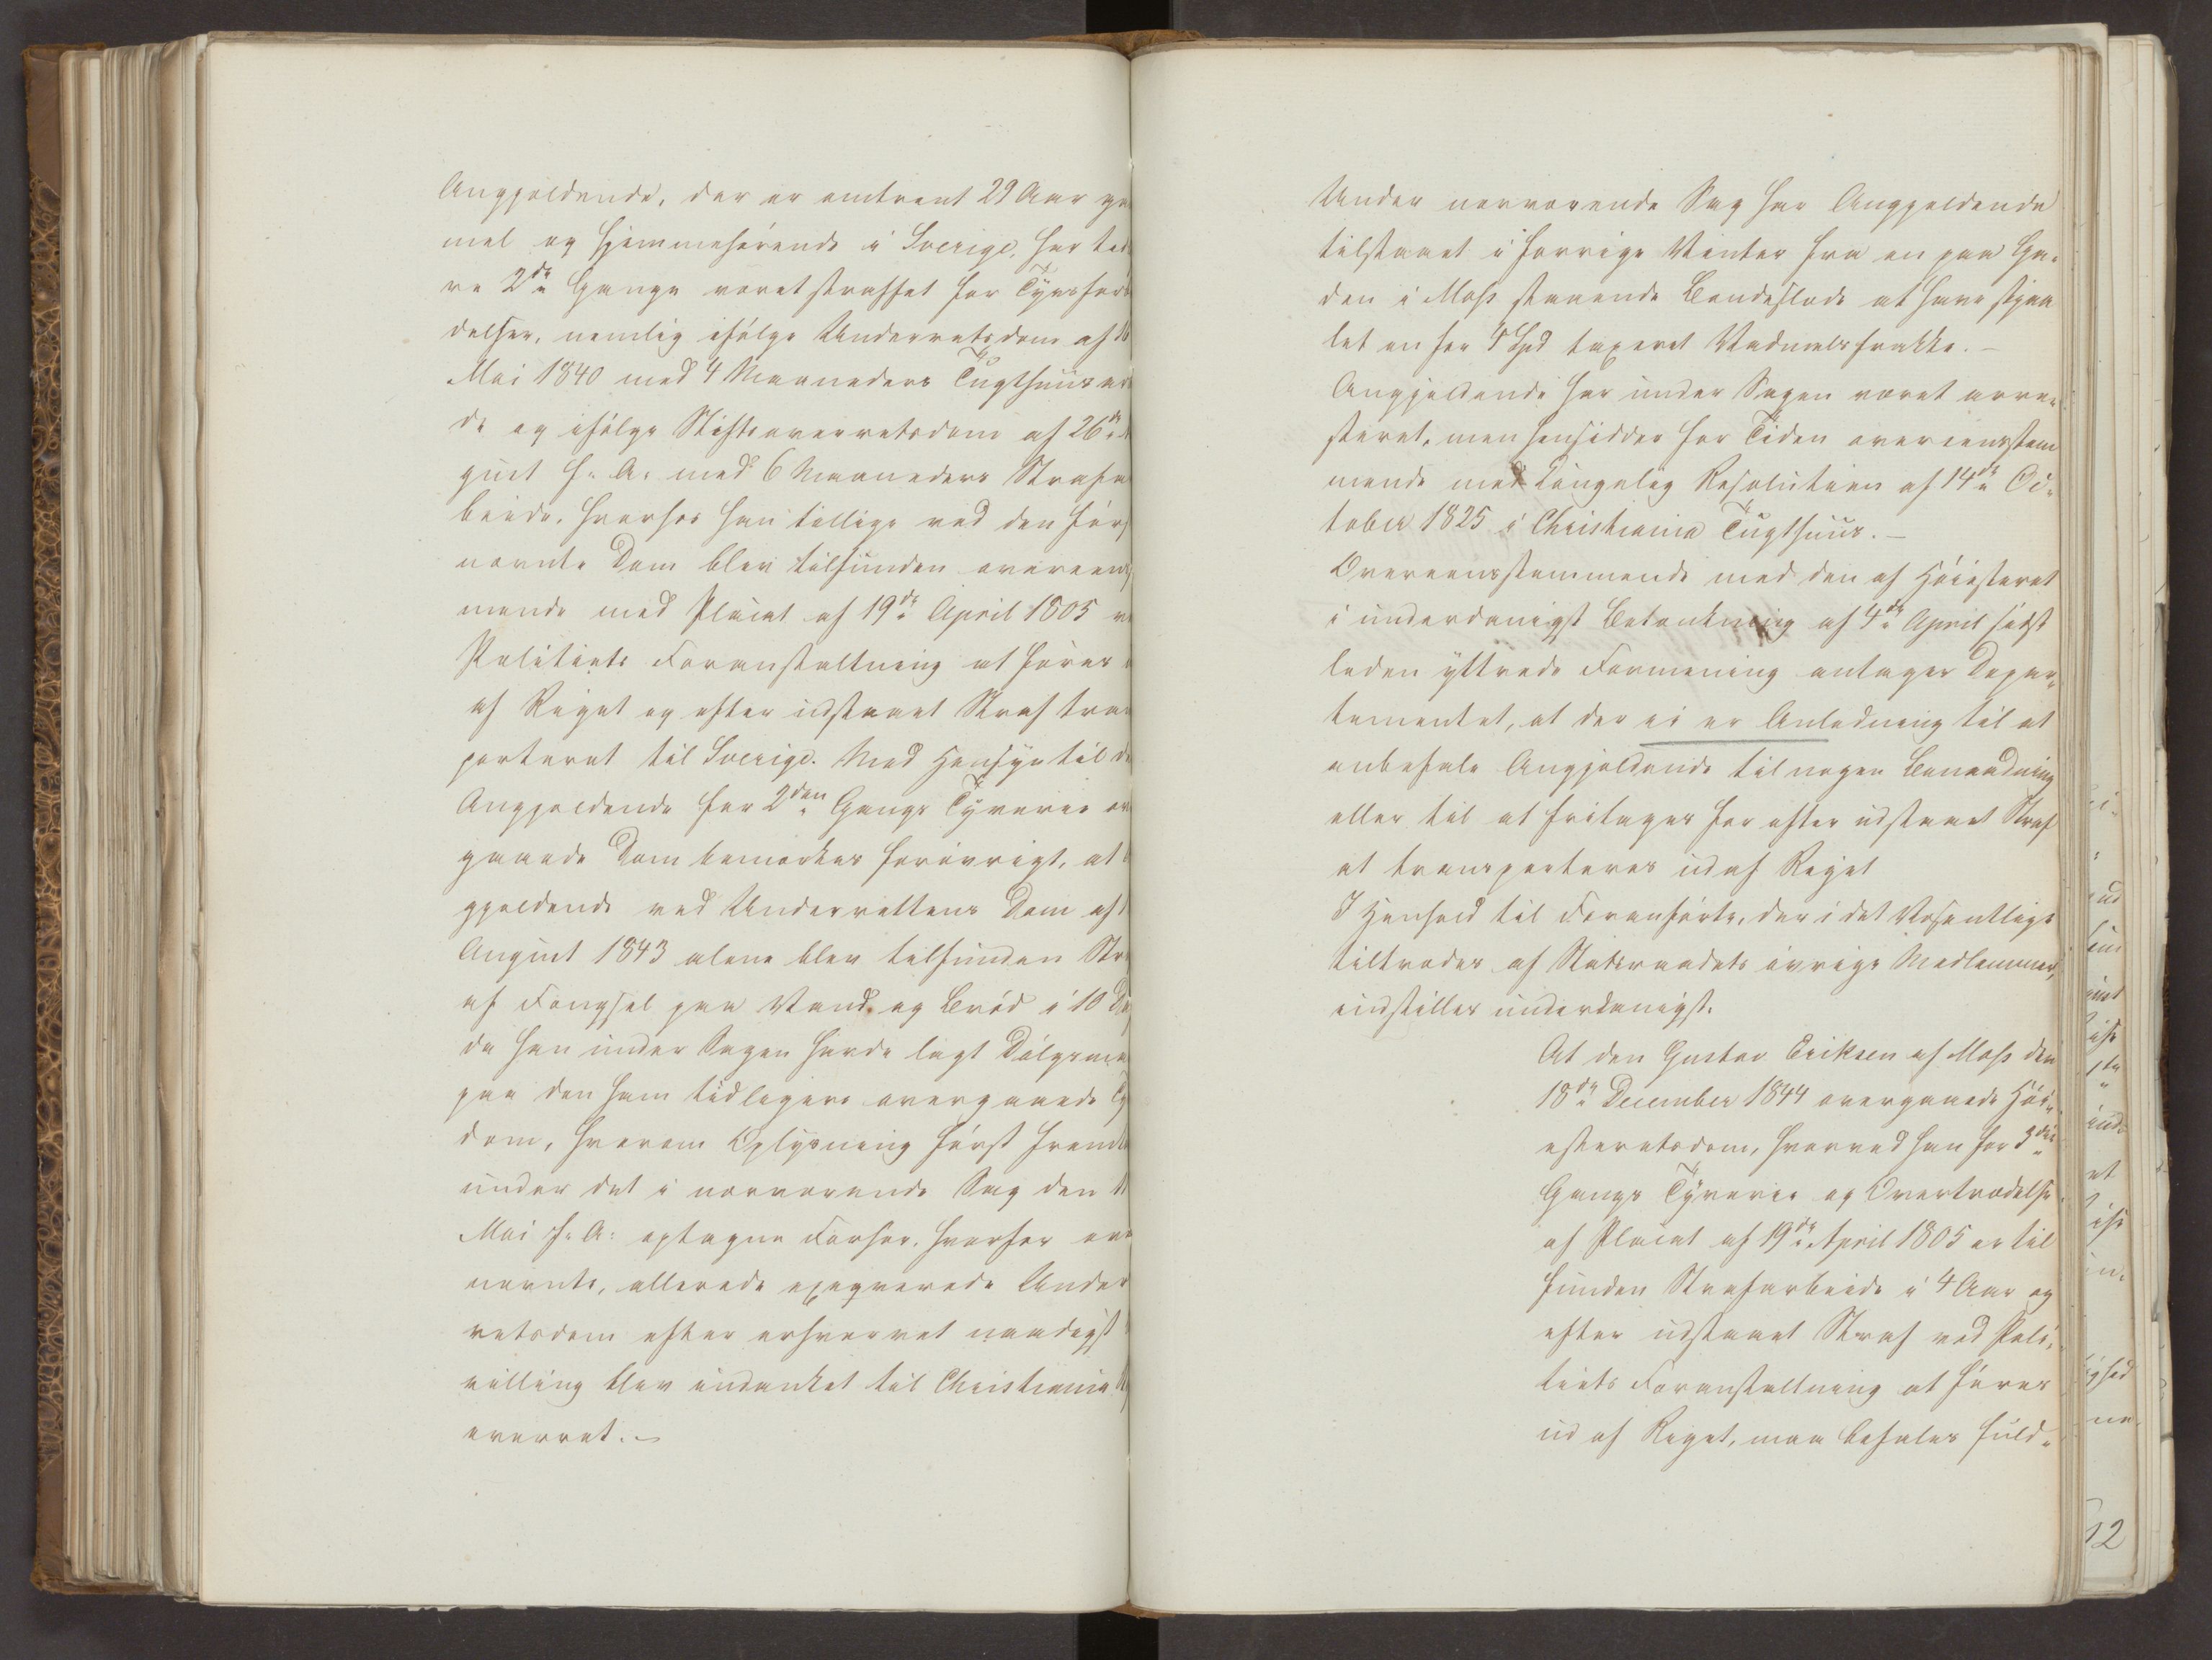 Angjeldende, der er omtrent 29 Aar ga
mel og hjemmehørende i Sverige, har tid
re 2de Gange været straffet for Tyvsfor
delser, nemlig ifølge Underretsdom af
Mai 1840 med 4 Maaneders Tugthuusar
de og ifølge Stiftsoverretsdom af 26de
gust f. A. med 6 Maaneders Strafa
beide, hvorhos han tillige ved den først
nævnte Dom blev tilfunden overeens
mende med Placat af 19de April 1805 v
Politiets Foranstaltning at føres
af Riget og efter udstaaet Straf tran
porteret til Sverige. Med Hensyn til d
Angjeldende for 2den Gangs Tyverie ov
gaaede Dom bemærkes forøvrigt, at
gjeldende ved Underrettens Dom af
August 1843 alene blev tilfunden Str
af Fængsel paa Vand og Brød i 10 Da
da han under Sagen havde lagt Dølgsma
paa den ham tidligere overgaaede Ty
dom, hvorom Oplysning først fremk
under det i nærværende Sag den
Mai f. A. optagne Forhør, hvorfor ov
nævnte, allerede exeqverede Under
retsdom efter erhvervet naadigst
villing blev indanket til Christiania
overret. –
Under nærværende Sag har Angjeldende
tilstaaet i forrige Vinter fra en paa Ga-
den i Moss staaende Bondeslæde at have stjaa
let en for 5 Spd taxeret Vadmelsfrakke. –
Angjeldende har under Sagen været arre-
steret, men hensidder for Tiden overeensstem
mende med Kongelig Resolution af 14de Oc-
tober 1825 i Christiania Tugthuus. –
Overeensstemmende med den af Høiesteret
i underdanigst Betænkning af 4de April sidst
leden yttrede Formening antager Depar-
tementet, at der ei er Anledning til at
anbefale Angjeldende til nogen Benaadning
eller til at fritages for efter udstaaet Straf
at transporteres ud af Riget
I Henhold til Foranførte, der i det Væsentlige
tiltrædes af Statsraadets øvrige Medlemmer,
indstilles underdanigst:
At den Gustav Eriksen af Moss den
18de December 1844 overgaaede Høi-
esteretsdom, hvorved han for 3die
Gangs Tyverie og Overtrædelse
af Placat af 19de April 1805 er til
funden Strafarbeide i 4 Aar og
efter udstaaet Straf ved Poli-
tiets Foranstaltning at føres
ud af Riget, maa befales fuld-
12